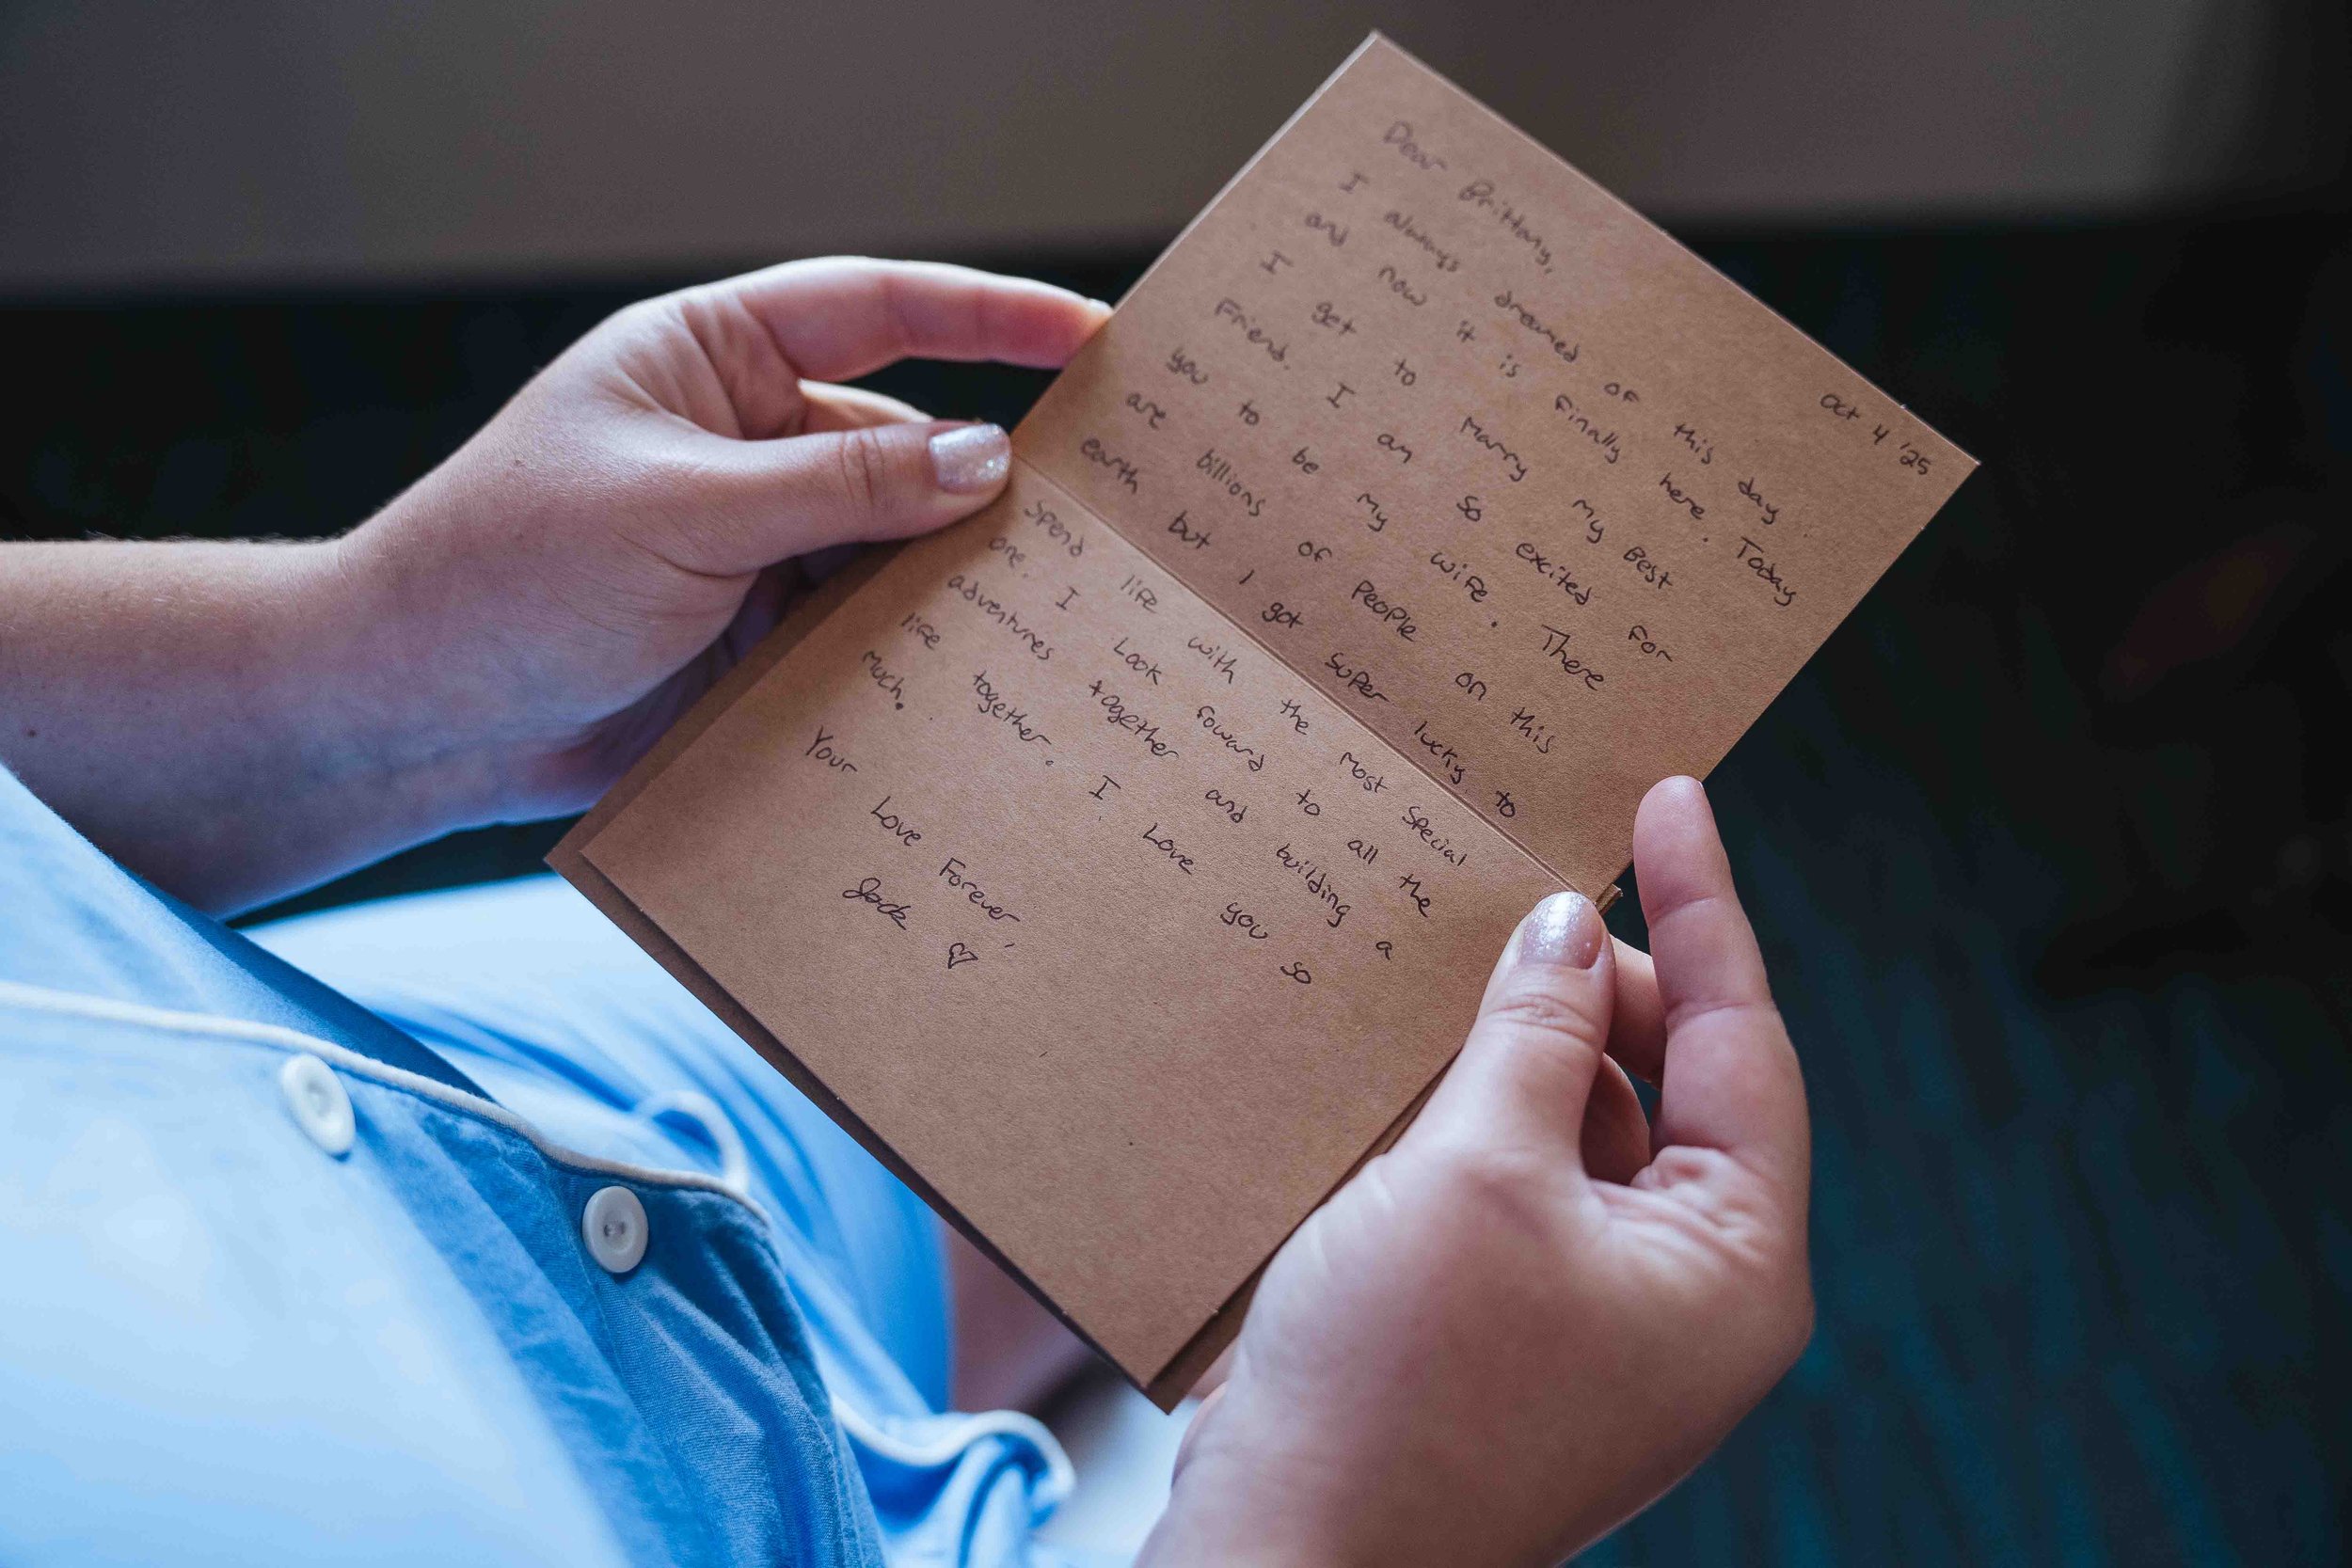 Oct 4 '25
Dear Brittany,
I always dreamed of this day
and now it is finally here. Today
I get to Marry My Best
Friend. I am so excited for
you to be my wife. There
are billions of People on this
earth but I got super lucky to
spend life with the most special
one. I Look foward to all the
adventures together and building a
life together. I Love you so
much.
Your Love Forever,
Jack ♡